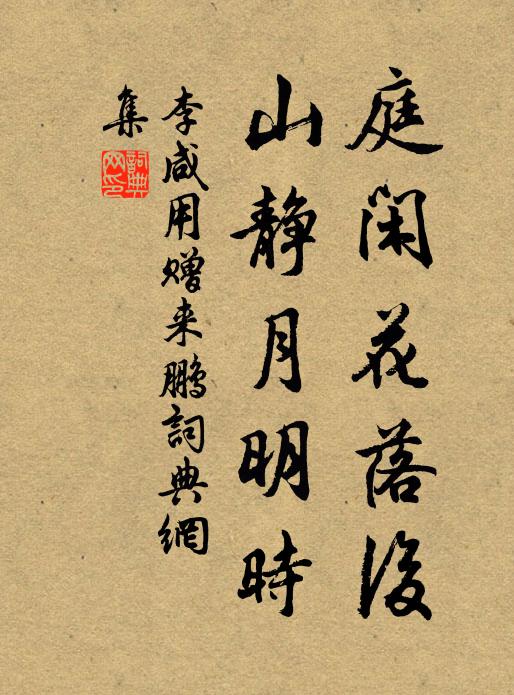 庭閑花落後
山静月明時
李咸用赠来鹏詞典網
集
詞典網印